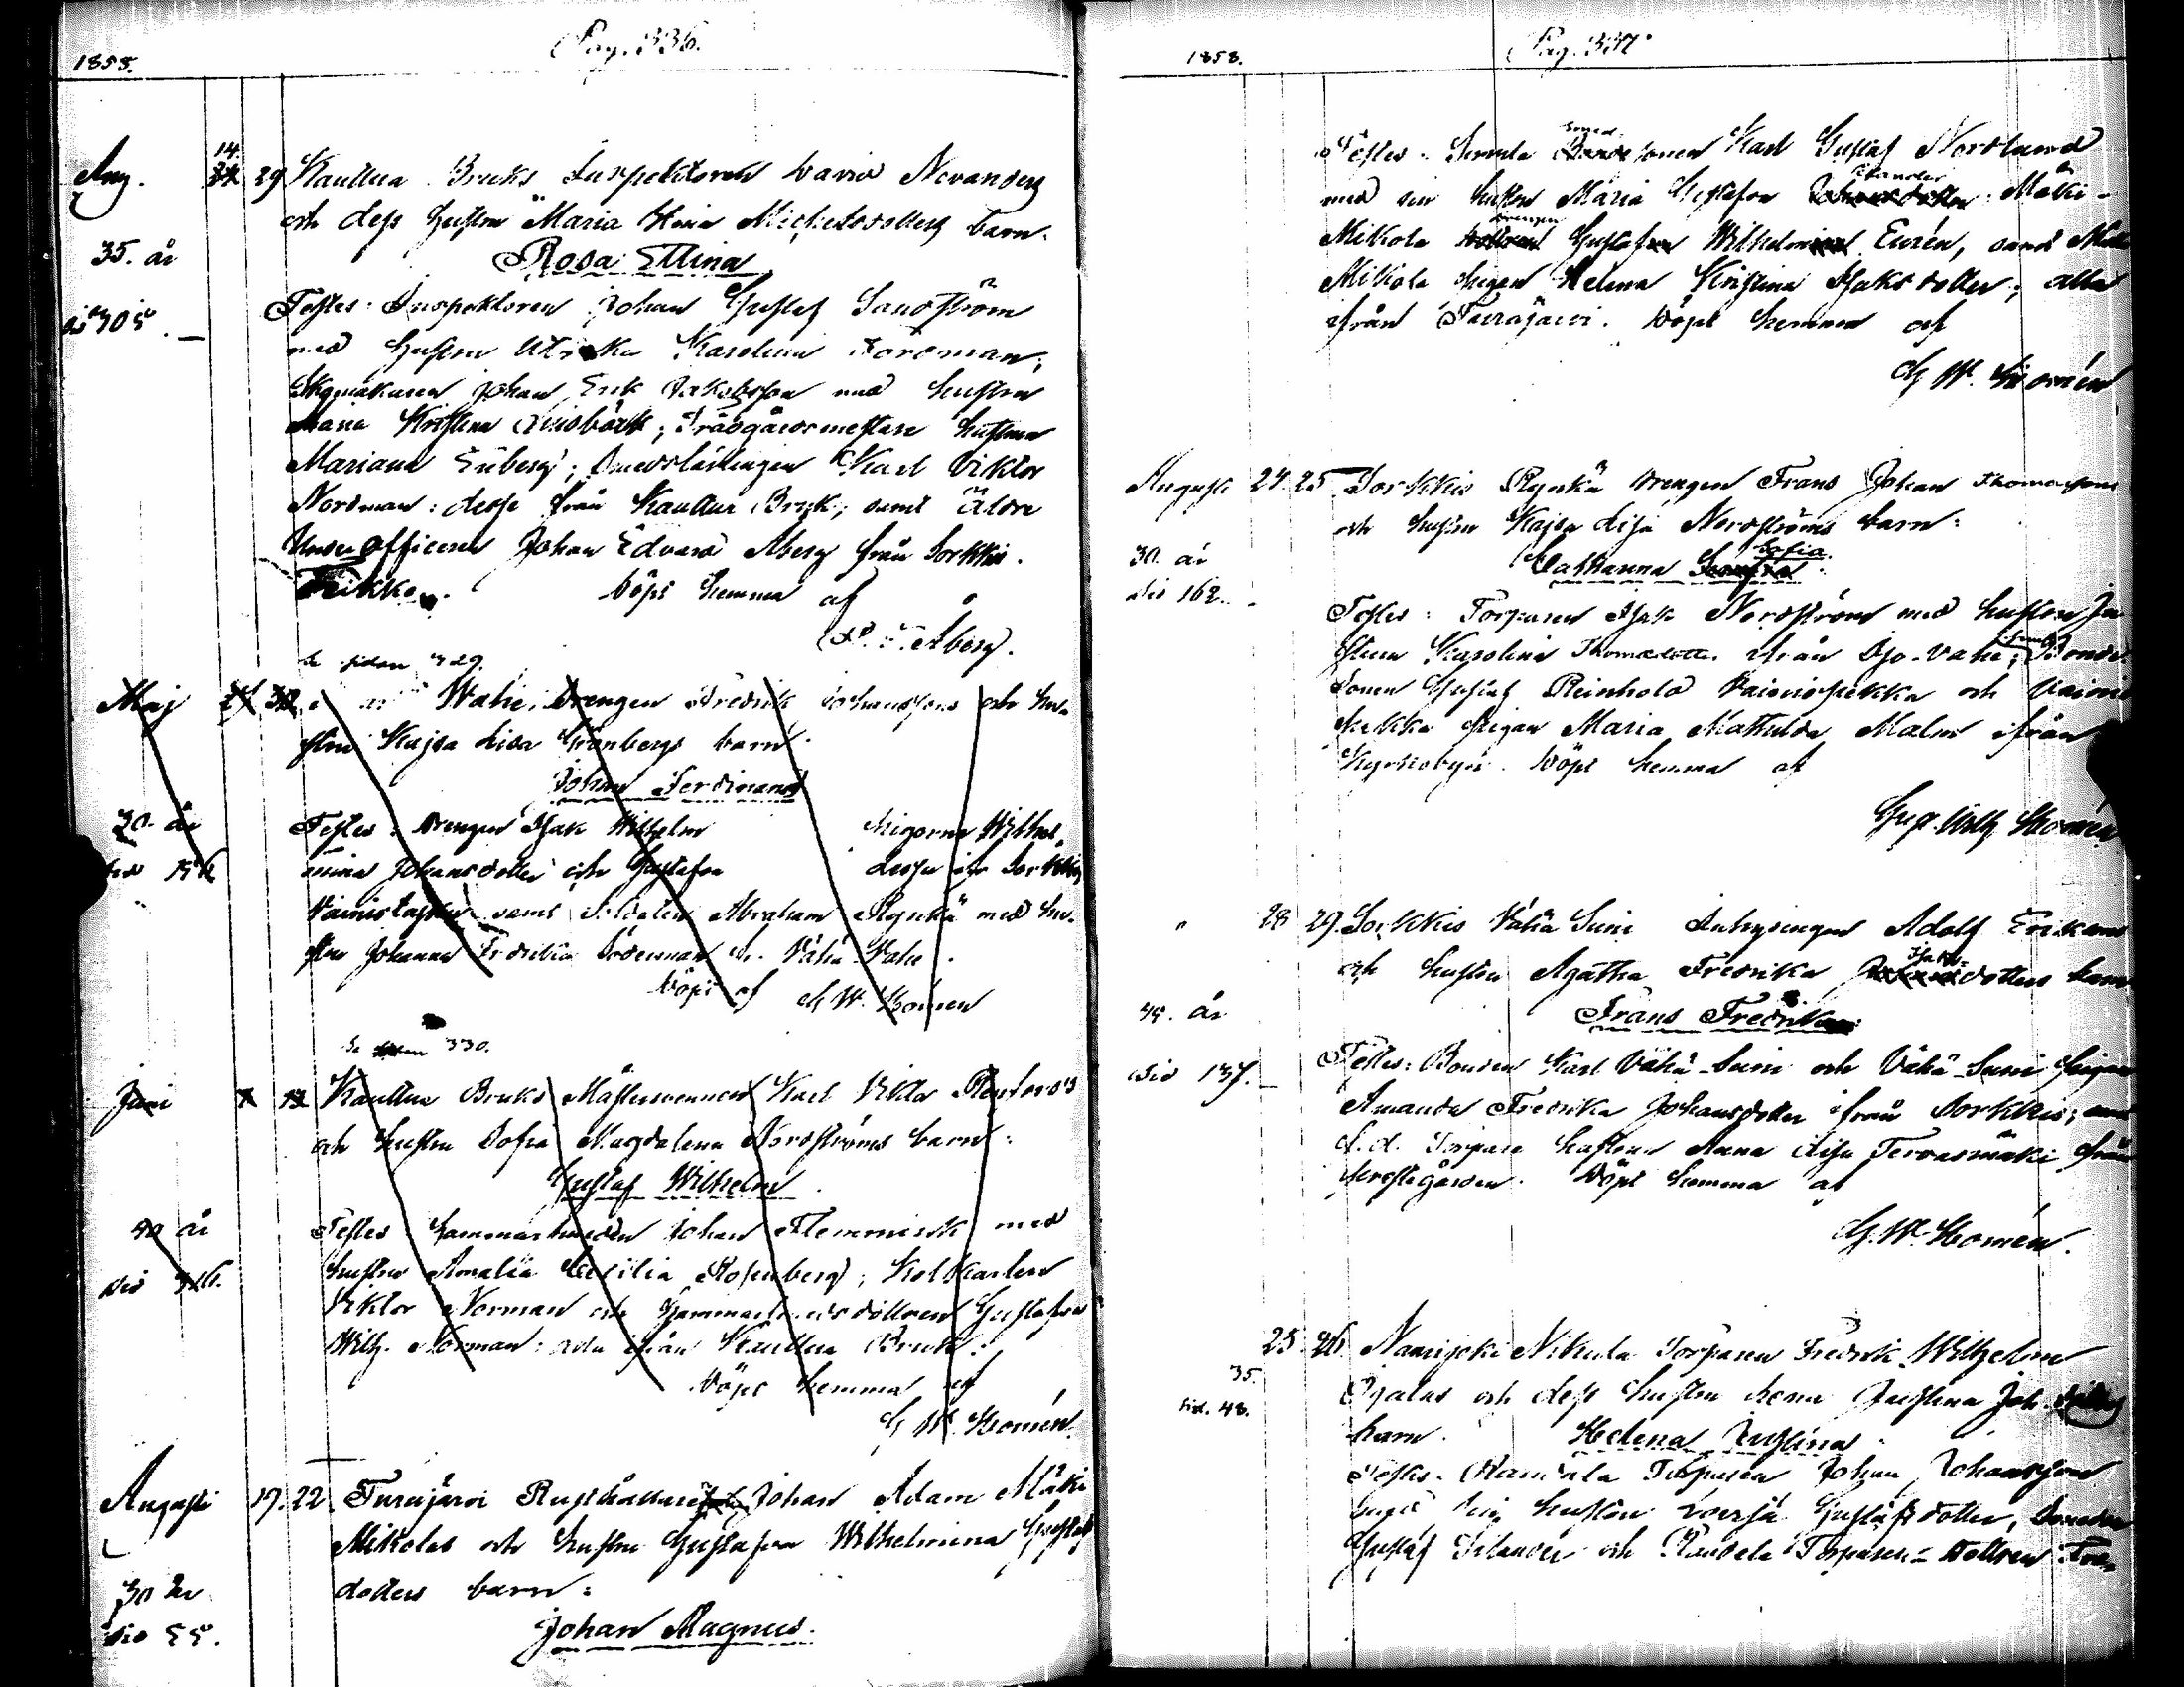 Pag. 336.
1858.
Aug. 14. 29 Kauttua Bruks Inspektoren David Novanders
och dess hustru Maria Stina Michelsdotters barn.
35. år
Rosa Ellina
sid 305. —
Testes: Inspektoren Johan Gustaf Sandström
med hustru Ulrika Karolina Fordman;
Johan Erik Jakobsson med hustru
Maria Kristina; Trädgårdsmästare hustrun
Mariana Enberg; Smedslärlingen Karl Viktor
Nordman: desse från Kauttua Bruk; samt äldre
Under officeren Johan Edvard Åberg från Sorkkis.
Döpt hemma af
Åberg.
Se sidan 329.
Maj Wahe, Drengen Fredrik Johanssons och hu-
stru Kajsa Lisa Grönbergs barn.
Johan Ferdinand
30. år
Testes: Drengen Isak Wilhelm pigorna Wilhel-
mina Johansdotter och Gustafva desse ifr Sorkkis
samt Soldaten Abraham Rynkä med hu-
stru Johanna Fredrika Söderman fr. Vähä Vahe.
Döpt af G. W. Homén
Se sidan 330.
Juni Kauttua Bruks Mästersvennen Karl Viktor
och hustru Sofia Magdalena Nordströms barn:
Gustaf Wilhelm
40 år
Testes: Hammarsmeden Johan Flemmink med
hustru Amalia Cecilia Rosenberg; Kolkarlen
Viktor Norman och Hammarsmedsdottren Gustafva
Wilh. Norman: alla ifrån Kauttua Bruk.
Döpt hemma af
G. W. Homén.
Augusti 17. 22. Turajärvi Rusthållare Johan Adam Mäki
Mikolas och hustru Gustafva Wilhelmina Gustafs
dotters barn:
30 år
sid 55.
Johan Magnus.
Pag. 337.
1858.
Testes: sonen Karl Gustaf Nordlund
med sin hustru Maria Gustafva Mäki-
Mikola drengen Gustaf Wilhelm Eurén, samt Mäki
Mikola pigan Helena Kristina Isaksdotter; alla
från Turajärvi. Döpt hemma af
G. W. Homén
Augusti 24. 25 Sorkkis Rynkä drengen Frans Johan Thomassons
och hustru Kajsa Lisa Nordströms barn:
30. år
Katharina Sofia
sid 162.
Testes: Torparen Isak Nordström med hustru Ju-
stina Karolina Thomasdotter ifrån Iso-Vahe; Bonde
sonen Gustaf Reinhold Vainionpekka och Vainion
pekka pigan Maria Mathilda Malm ifrån
Kyrkobyn. Döpt hemma af
Gust. Wilh. Homén
" 28 29. Sorkkis Vähä Suni Inhysingen Adolf Erikssons
och hustru Agatha Fredrika Isaks-dotters barn
44. år
Frans Fredrik
sid 137. —
Testes: Bonden Karl Vähä-Suni och Vähä-Suni pigan
Amanda Fredrika Johansdotter ifrån Sorkkis; samt
f.d. Torpare hustrun Anna Lisa Tervasmäki från
Prestegården. Döpt hemma af
G. W. Homén.
25. 26. Naarijoki Nikula Torparen Fredrik Wilhelm
35.
Ojalas och dess hustru Lena Justina Joh. dotters
sid. 48.
barn. Helena Justina
Testes: Torparen Johan Johansson
med sin hustru Lovisa Gustafsdotter, Smeden
Gustaf Silander och Torpare-dottren